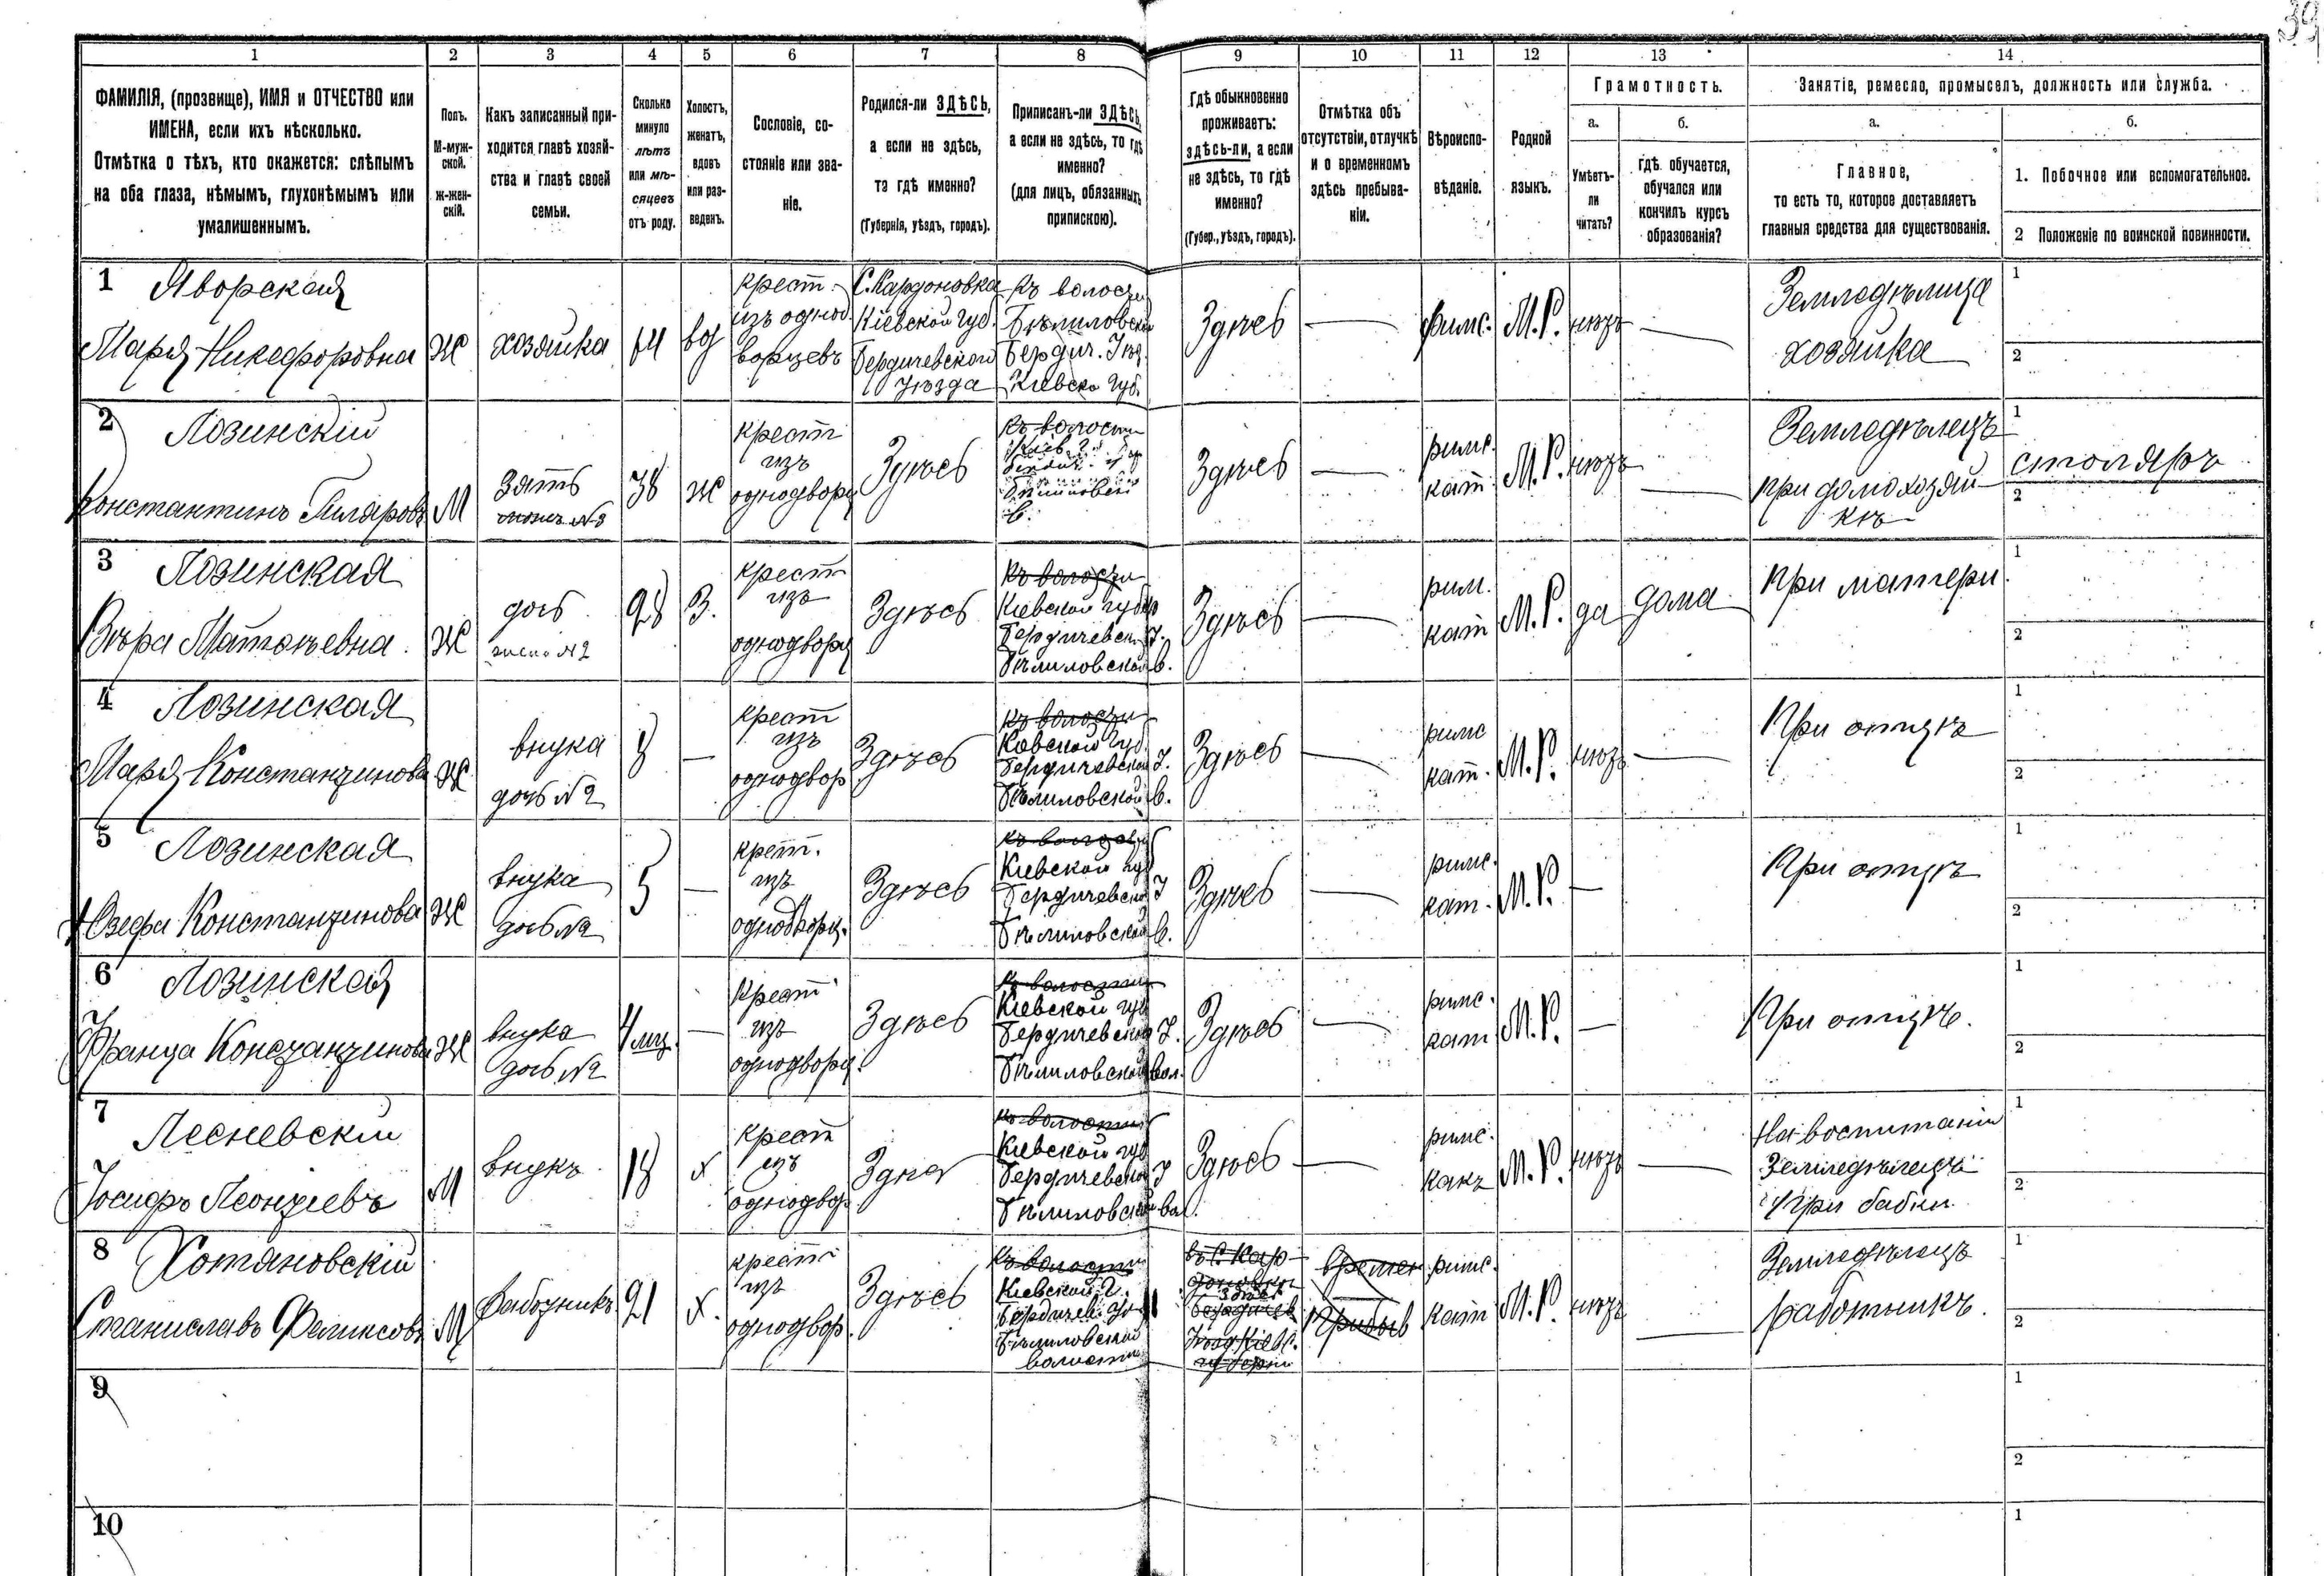 39
1 2 3 4 5 6 7 8 9 10 11 12 13 14
ФАМИЛІЯ, (прозвище), ИМЯ и ОТЧЕСТВО или
ИМЕНА, если ихъ нѣсколько.
Отмѣтка о тѣхъ, кто окажется: слѣпымъ
на оба глаза, нѣмымъ, глухонѣмымъ или
умалишеннымъ.
Полъ.
М-муж-
ской.
ж-жен-
скій.
Какъ записанный при-
ходится главѣ хозяй-
ства и главѣ своей
семьи.
Сколько
минуло
лѣтъ
или мѣ-
сяцевъ
отъ роду.
Холостъ,
женатъ,
вдовъ
или раз-
веденъ.
Сословіе, со-
стояніе или зва-
ніе.
Родился-ли ЗДѢСЬ,
а если не здѣсь,
то гдѣ именно?
(Губернія, уѣздъ, городъ).
Приписанъ-ли ЗДѢСЬ,
а если не здѣсь, то гдѣ
именно?
(для лицъ, обязанныхъ
припискою).
Гдѣ обыкновенно
проживаетъ:
здѣсь-ли, а если
не здѣсь, то гдѣ
именно?
(Губер., уѣздъ, городъ).
Отмѣтка объ
отсутствіи, отлучкѣ
и о временномъ
здѣсь пребыва-
ніи.
Вѣроиспо-
вѣданіе.
Родной
языкъ.
Грамотность.
а.
Умѣетъ-
ли
читать?
б.
гдѣ обучается,
обучался или
кончилъ курсъ
образованія?
Занятіе, ремесло, промыселъ, должность или служба.
а.
Главное,
то есть то, которое доставляетъ
главныя средства для существованія.
б.
1. Побочное или вспомогательное.
2 Положеніе по воинской повинности.
1 Яворская
Марія Никефоровна
Ж
хозяйка
64
вд
крест.
изъ одно
ворцевъ
С. Кардоновка
Кіевской губ.
Бердичевскаго
уѣзда
Къ волости
Бѣлиловской
Бердич. Уѣз.
Кіевско губ.
Здѣсь
—
римс.
М.Р.
нѣтъ
—
Земледѣлица
хозяйка
1
2
2 Лозинскій
Константинъ Гиляровъ
М
зять
мужъ №3
38
ж
крест
изъ
однодворц
Здѣсь
Къ волости
Здѣсь
—
римс.
кат.
М.Р.
нѣтъ
—
Земледѣлецъ
при домохозяй-
кѣ
1
столяръ
2
3 Лозинская
Вѣра Матвѣевна.
Ж
дочь
жена №2
28
З.
крест
изъ
однодворц
Здѣсь
Къ волости
Кіевской губер
Бердичевск. У.
Бѣлиловской в.
Здѣсь
—
рим.
кат
М.Р.
да
дома
При матери.
1
2
4 Лозинская
Марія Константинова
Ж
внука
дочь №2
8
—
крест
изъ
однодвор
Здѣсь
Къ волости
Кіевской губ.
Бердичевской У.
Бѣлиловской в.
Здѣсь
—
римс
кат.
М.Р.
нѣтъ
—
При отцѣ
1
2
5 Лозинская
Юзефа Константинова
Ж
внука
дочь №2
5
—
крест.
изъ
однодворц.
Здѣсь
Къ волости
Кіевской губ
Бердичевско У
Бѣлиловской в.
Здѣсь
—
римс.
кат.
М.Р.
—
При отцѣ
1
2
6 Лозинская
Франца Константинова
Ж
внука
дочь №2
4 мц.
—
Крест
изъ
однодворц.
Здѣсь
Къ волости
Кіевской губ
Бердичевско У.
Бѣлиловской вол.
Здѣсь
—
римс.
кат
М.Р.
—
При отцѣ.
1
2
7 Лесневскій
Іосифъ Леонтіевъ
М
внукъ
18
х
крест
изъ
однодвор
Здѣсь
Къ волости
Кіевской губ
Бердичевской У
Бѣлиловской вол.
Здѣсь
—
римс.
кат
М.Р.
нѣтъ
—
На воспитаніи
Земледѣлецъ
при бабки
1
2
8 Хотяновскій
Станиславъ Феликсовъ
М
работникъ
21
х.
крест
изъ
однодвор.
Здѣсь
Къ волости
Кіевской г.
Бердичев. Уѣ
Бѣлиловской
волости
въ С. Кар-
доновки
здѣсь
Бердичев
Уѣзд Кіевс.
губерніи
Времен
прибыв
римс.
кат
М.Р.
нѣтъ
—
Земледѣлецъ
работникъ.
1
2
9
1
2
10
1